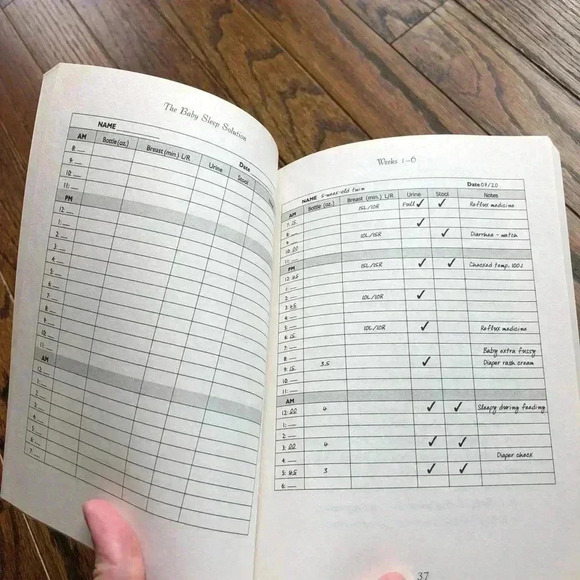 The Baby Sleep Solution
NAME
Date
AM Bottle (oz.) Breast (min.) L/R Urine Stool
8:
9:
10:
11:
PM
12:
1:
2:
3:
4:
5:
6:
7:
8:
9:
10:
11:
AM
12:
1:
2:
3:
4:
5:
6:
7:
Weeks 1–6
NAME 5-week-old twin Date 07/20
AM Bottle (oz.) Breast (min.) L/R Urine Stool Notes
7:15 15L/10R Full ✓ ✓ Reflux medicine
8: ✓
9: 10L/15R ✓ Diarrhea - watch
10:00
11:
PM 15L/15R ✓ ✓ Checked temp. 100.1
12:45
1:
2: 10L/10R ✓
3:45
4:
5: 10L/10R ✓ Reflux medicine
6:15
7:
8: Baby extra fussy
9:15 3.5 ✓ Diaper rash cream
10:
11:
AM
12:00 4 ✓ ✓ Sleepy during feeding
1:
2:
3:00 4 ✓ ✓
4: Diaper check
5:45 3 ✓ ✓
6:
37